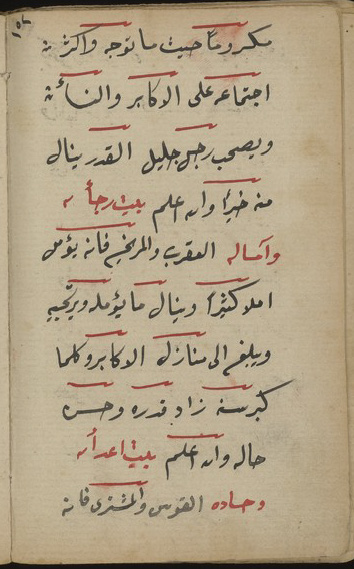 مكروما حيث ما توجه واكثر
اجتماعه على الاكابر والنساء
ويصحب رجل جليل القدر ينال
منه خيرا والله اعلم بيت رجائه
وآماله العقرب والمريخ فانه يؤمل
املا كثيرا وينال ما يؤمله ويرتجيه
ويبلغ الى منازل الاكابر وكلما
كبر سنه زاد قدره وحسن
حاله والله اعلم بيت اعدائه
وحساده القوس والمشترى فانه